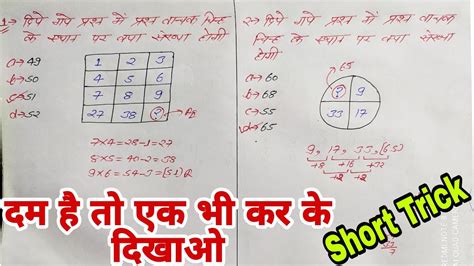 1→ दिये गये प्रश्न में प्रश्न वाचक चिन्ह
के स्थान पर क्या संख्या
होगी
a→49
b→50
c→51
d→52
1 2 3
4 5 6
7 8 9
27 38 ?
7×4=28-1=27
8×5=40-2=38
9×6=54-3=[51]
2→ दिये गये प्रश्न में प्रश्न वाचक चिन्ह
के स्थान पर क्या संख्या
होगी
a→60
b→68
c→55
d→65
65
? 9
33 17
9, 17, 33, [65]
+8 +16 +32
दम है तो एक भी कर के
दिखाओ
Short Trick